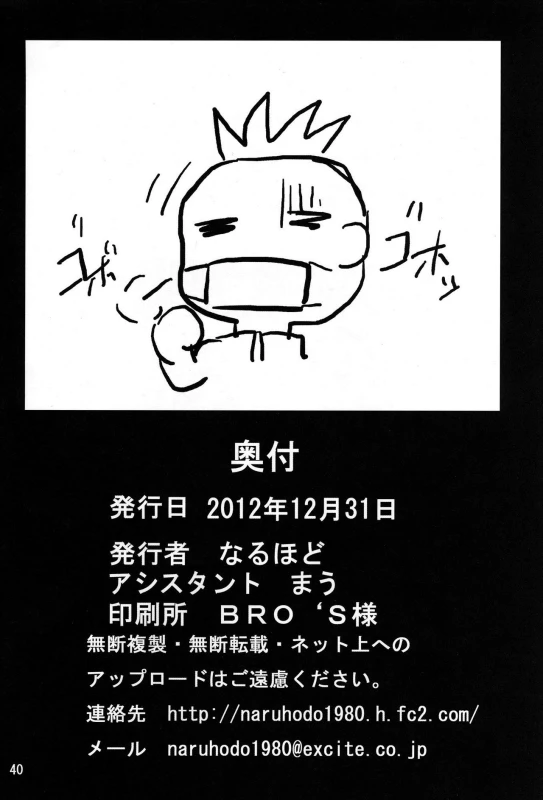 ゴホ
ゴホッ
奥付
発行日 2012年12月31日
発行者 なるほど
アシスタント まう
印刷所 BRO 'S様
無断複製・無断転載・ネット上への
アップロードはご遠慮ください。
連絡先 http://naruhodo1980.h.fc2.com/
メール naruhodo1980@excite.co.jp
40